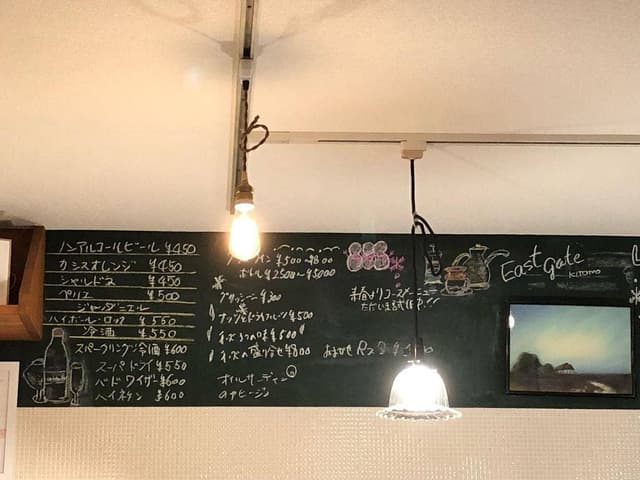 ノンアルコールビール ¥450
カシスオレンジ ¥450
シャルドネ ¥450
ペリエ ¥500
ジャックダニエル
ハイボール・ロック ¥550
冷酒 ¥550
スパークリング冷酒 ¥600
スーパードライ ¥550
バドワイザー ¥600
ハイネケン ¥600
ワイン ¥500~¥800
ボトル ¥2500~¥5000
¥300
ナッツとドライフルーツ ¥500
チーズ3つの味 ¥500
チーズの盛り合せ ¥800
オイルサーディン
のアヒージョ
来春よりコースメニュー
ただいま試作中!!
おまかせ
East gate
KITOMO